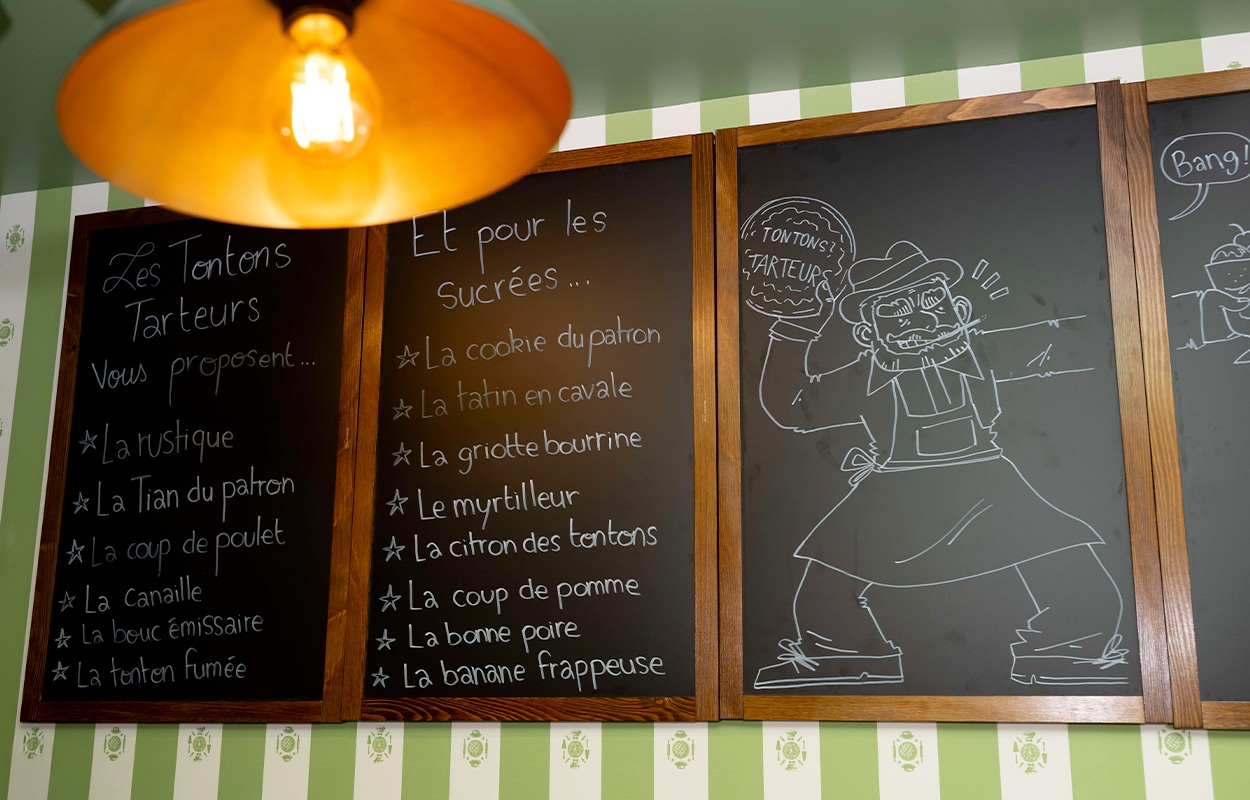 Les Tontons
Tarteurs
Vous proposent...
☆ La rustique
☆ La Tian du patron
☆ La coup de poulet
☆ La canaille
☆ La bouc émissaire
☆ La tonton fumée
Et pour les
sucrées...
☆ La cookie du patron
☆ La tatin en cavale
☆ La griotte bourrine
☆ Le myrtilleur
☆ La citron des tontons
☆ La coup de pomme
☆ La bonne poire
☆ La banane frappeuse
TONTONS
TARTEURS
Bang!